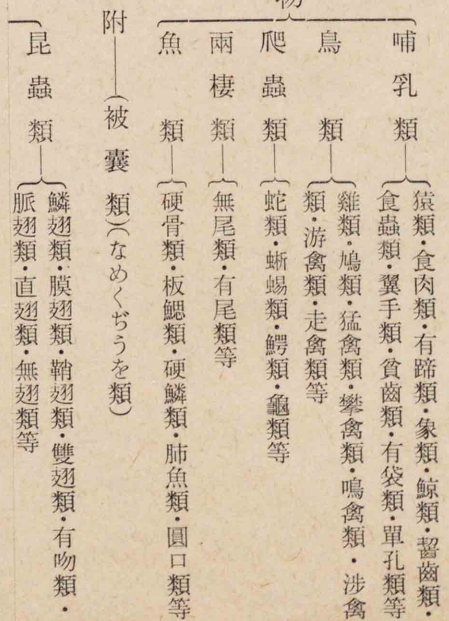 物
哺乳類
猿類・食肉類・有蹄類・象類・鯨類・齧齒類・
食蟲類・翼手類・貧齒類・有袋類・單孔類等
鳥類
雞類・鳩類・猛禽類・攀禽類・鳴禽類・涉禽
類・游禽類・走禽類等
爬蟲類
蛇類・蜥蜴類・鰐類・龜類等
兩棲類
無尾類・有尾類等
魚類
硬骨類・板鰓類・硬鱗類・肺魚類・圓口類等
附――(被囊類)(なめくぢうを類)
昆蟲類
鱗翅類・膜翅類・鞘翅類・雙翅類・有吻類・
脈翅類・直翅類・無翅類等